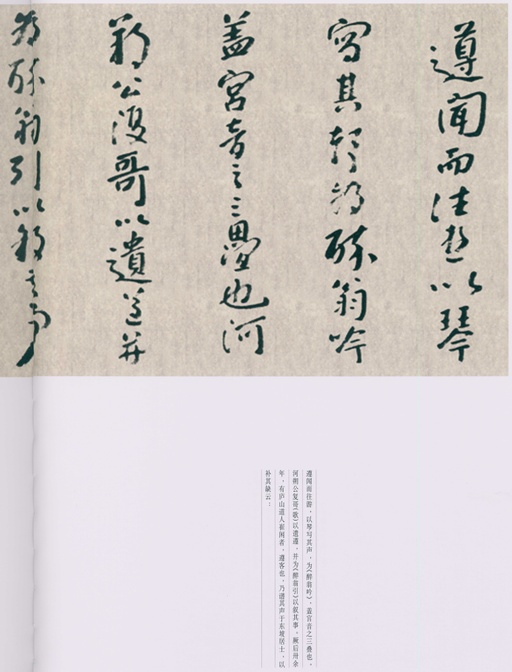 遵聞而往遊以琴
寫其聲為醉翁吟
蓋宮音之三疊也河
朔公復哥以遺遵并
為醉翁引以敘其事
遵闻而往游，以琴写其声，为《醉翁吟》，盖宫音之三叠也，
河朔公复哥（歌）以遗遵，并为《醉翁引》以叙其事，厥后卅余
年，有庐山道人崔闲者，遵客也，乃谱其声于东坡居士，以
补其缺云：